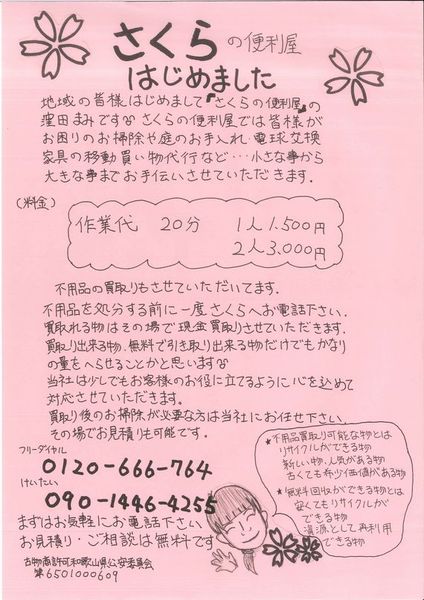 さくらの便利屋
はじめました
地域の皆様はじめまして『さくらの便利屋』の
窪田まみです🌸さくらの便利屋では皆様が
お困りのお掃除や庭のお手入れ・電球交換
家具の移動買い物代行など・・・小さな事から
大きな事までお手伝いさせていただきます.
(料金)
作業代 20分 1人1.500円
2人3.000円
不用品の買取りもさせていただいてます.
不用品を処分する前に一度さくらへお電話下さい.
買取れる物はその場で現金買取りさせていただきます.
買取り出来る物、無料で引き取り出来る物だけでもかなり
の量をへらせることかと思います🌸
当社は少しでもお客様のお役に立てるように心を込めて
対応させていただきます.
買取り後のお掃除が必要な方は当社にお任せ下さい.
その場でお見積りも可能です.
フリーダイヤル
0120-666-764
けいたい
090-1446-4255
まずはお気軽にお電話下さい
お見積り・ご相談は無料です
古物商許可和歌山県公安委員会
第6501000609
★不用品買取り可能な物とは
リサイクルができる物
新しい物、人気がある物
古くても希少価値がある物
★無料回収ができる物とは
安くてもリサイクルが
できる物
資源として再利用
できる物